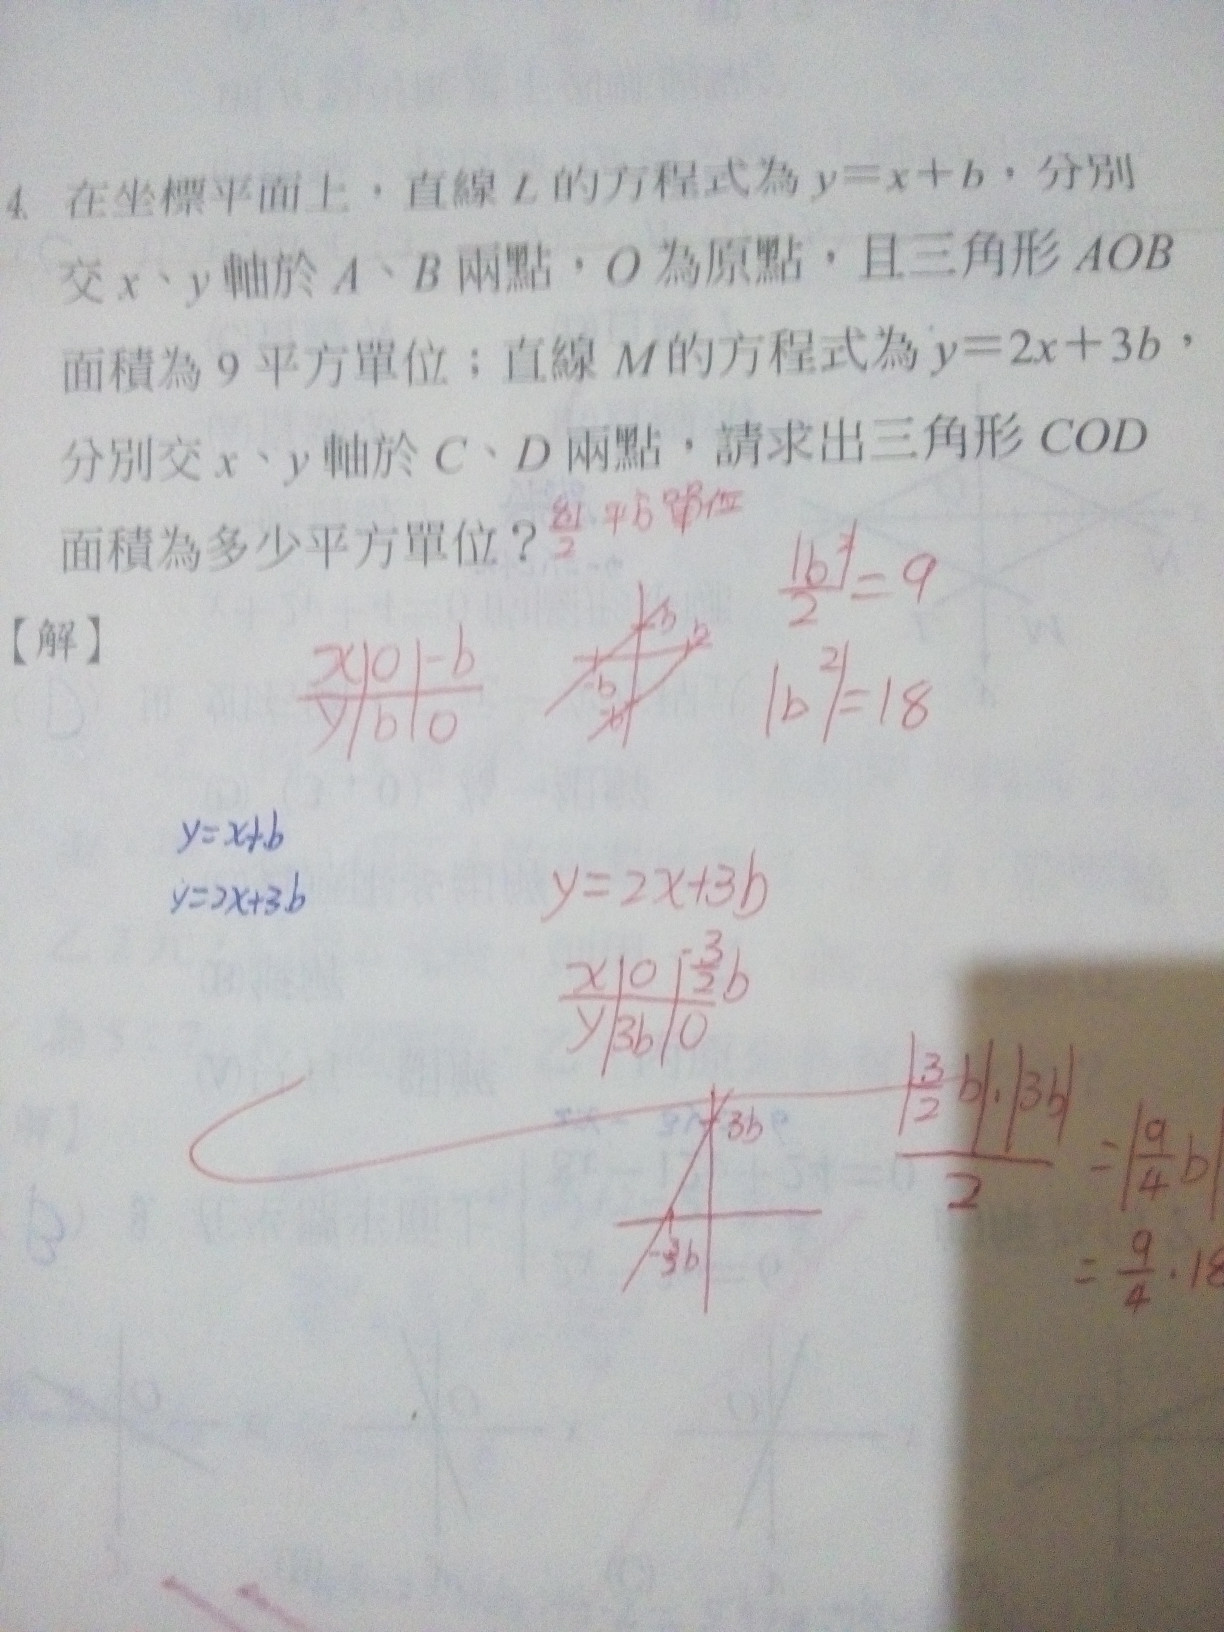 4. 在坐標平面上，直線 L 的方程式為 y＝x＋b，分別
交 x、y 軸於 A、B 兩點，O 為原點，且三角形 AOB
面積為 9 平方單位；直線 M 的方程式為 y＝2x＋3b，
分別交 x、y 軸於 C、D 兩點，請求出三角形 COD
面積為多少平方單位？81/2 平方單位
【解】
|b²|/2 = 9
x | 0 | -b
y | b | 0
b
b
-b
-b
|b²| = 18
y=x+b
y=2x+3b
y=2x+3b
x | 0 | -3/2 b
y | 3b | 0
3b
|3/2 b|·|3b| / 2
= |9/4 b
= 9/4 · 18